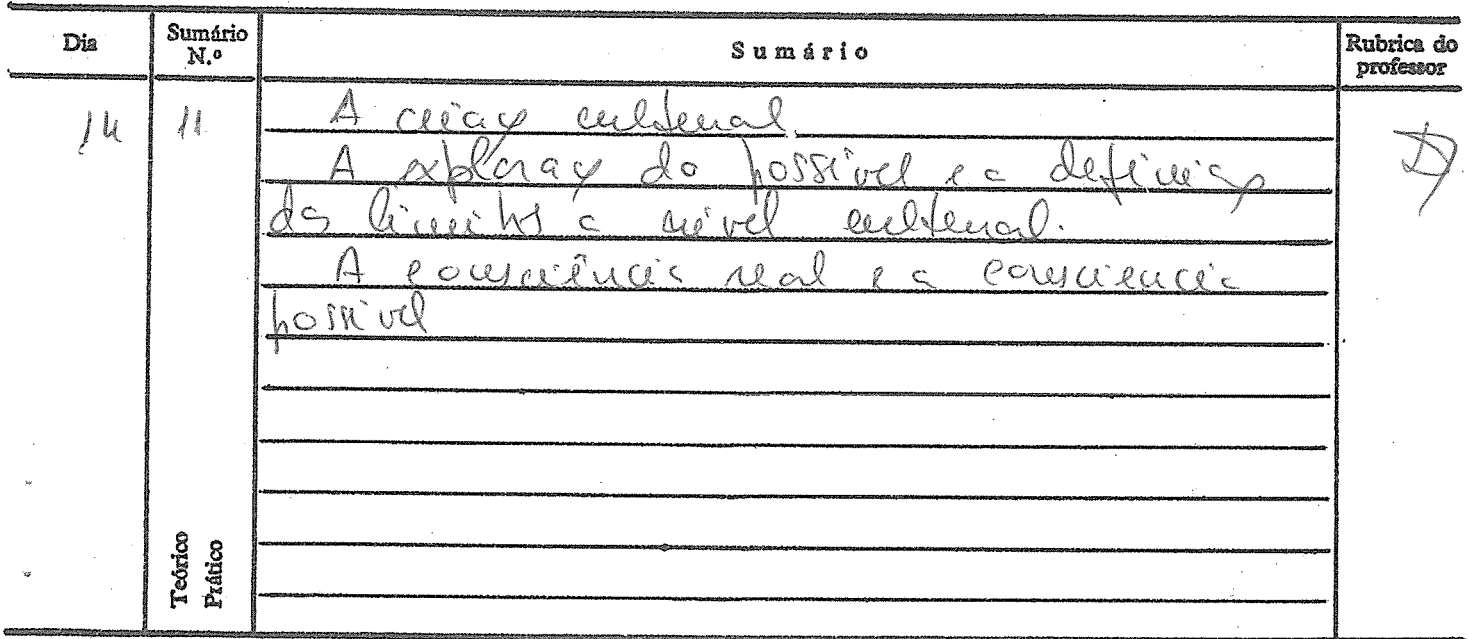 Dia Sumário N.º Sumário Rubrica do professor
14 11 A criação cultural.
A exploração do possível e a definição
dos limites a nível cultural.
A consciência real e a consciência
possível
Teórico
Prático